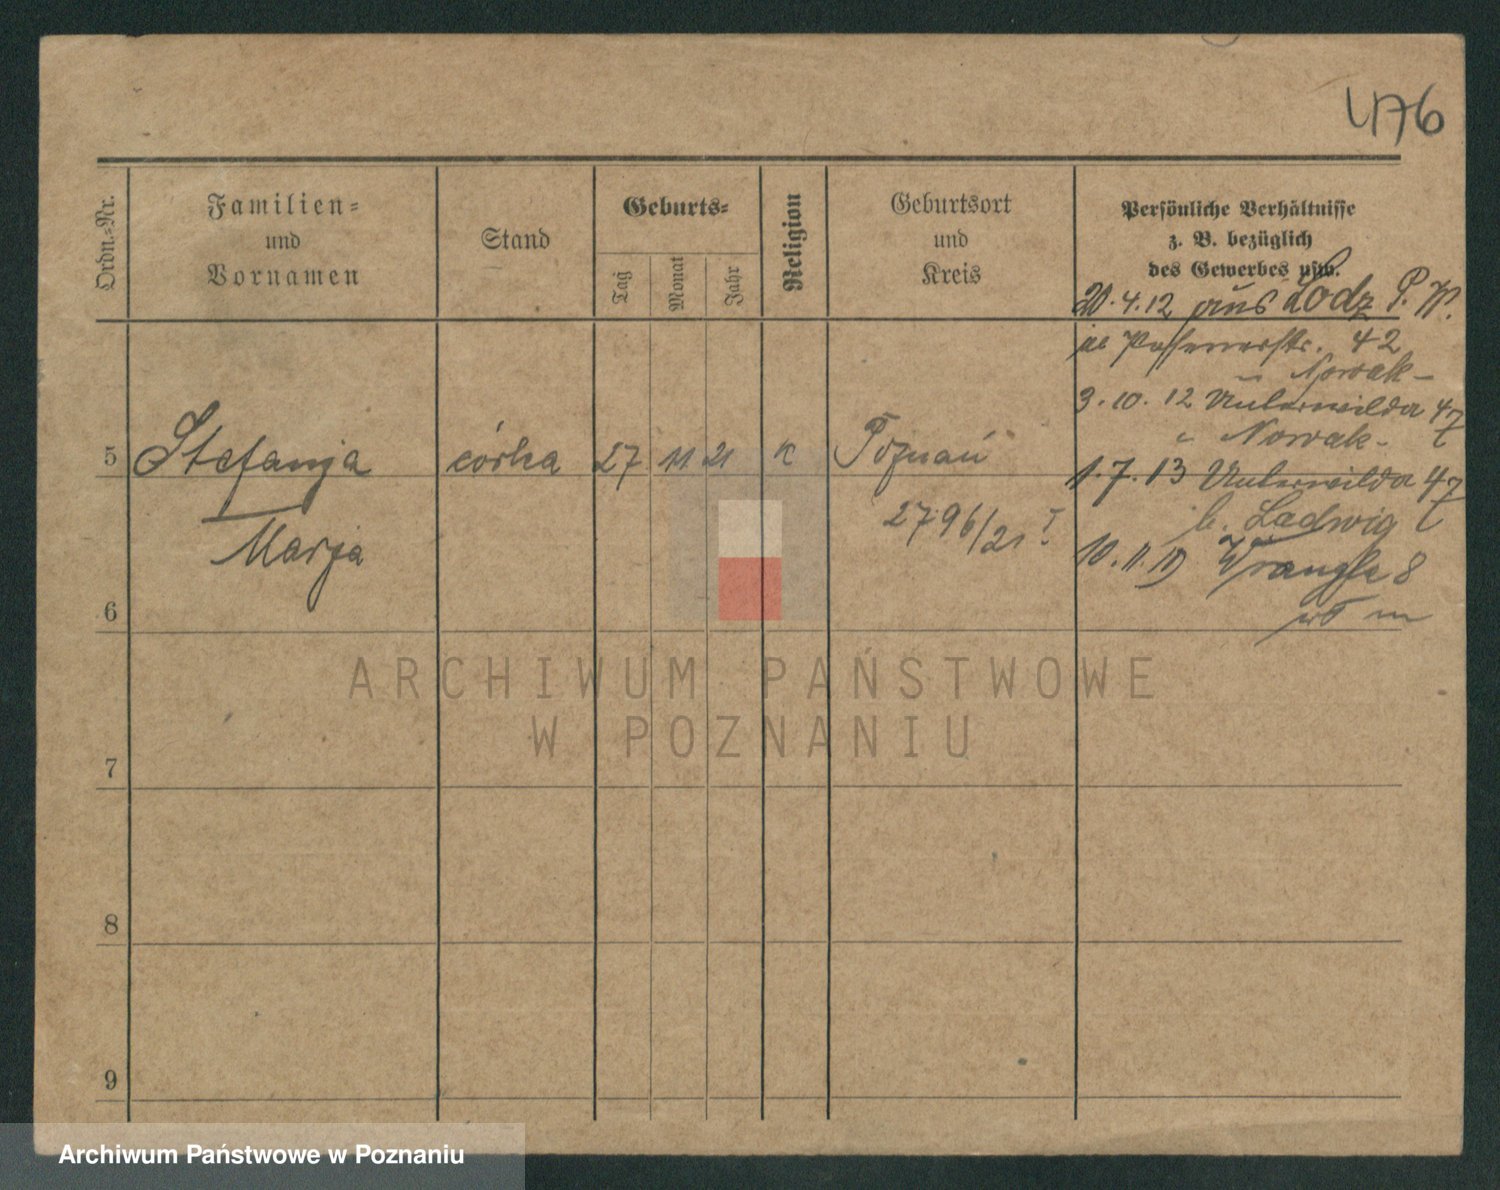 476
Ordn.-Nr.
Familien-
und
Vornamen
Stand
Geburts-
Tag
Monat
Jahr
Religion
Geburtsort
und
Kreis
Persönliche Verhältnisse
z. B. bezüglich
des Gewerbes usw.
20.4.12 aus Lodz P. W.
Posenerstr. 42
Nowak -
3.10.12 Unterwilda 47
" Nowak -
5 Stefanja córka 27 11 21 K Poznań
1.7.13 Unterwilda 47
b. Ladwig
2796/21 I.
Marja
10.11.19 Wrangls 8
6
ARCHIWUM PAŃSTWOWE
W POZNANIU
7
8
9
Archiwum Państwowe w Poznaniu